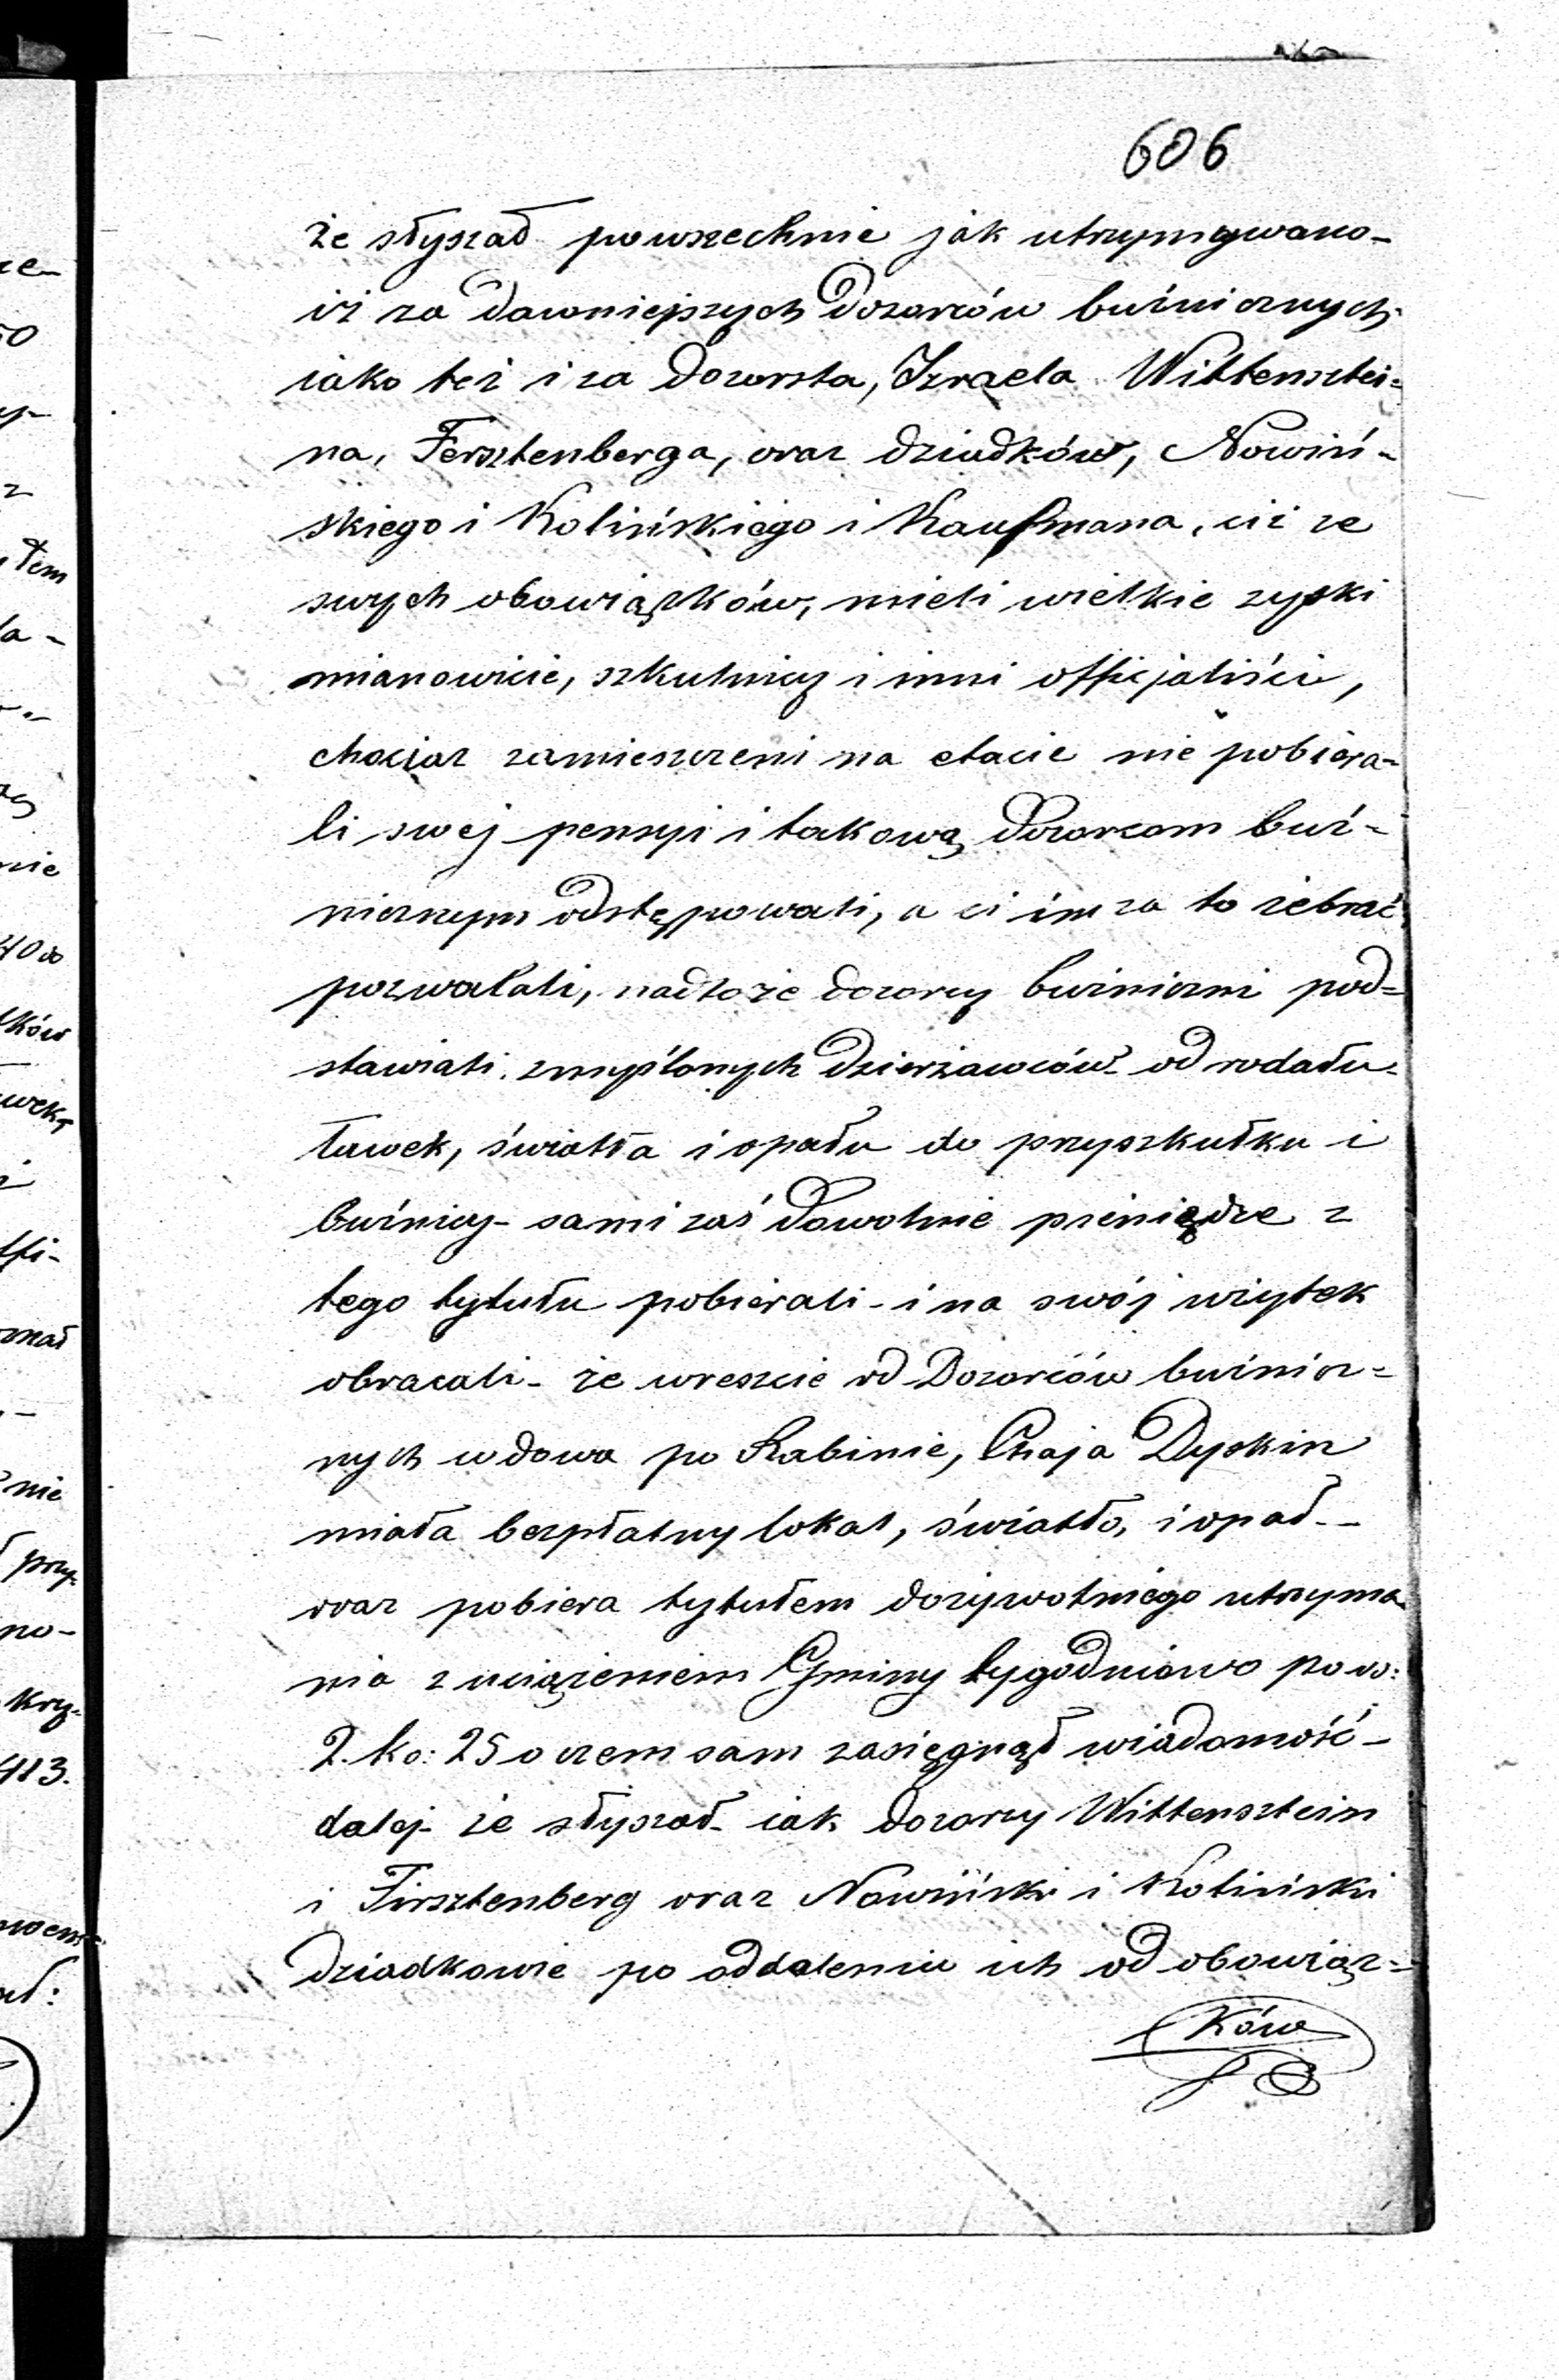 606
że słyszał powszechnie jak utrzymywano-
iż za dawniejszych Dozorców bużnicznych
iako też i za dozorsta, Izraela Wittensztei=
na, Fersztenberga, oraz dziadków, Nowiń-
skiego i Kolińskiego i Kaufmana, iż ze
swych obowiązków, mieli wielkie zyski
mianowicie, szkulnicy i inni officjaliści,
chociaz zamieszczeni na etacie nie pobiera-
li swej pensyi i takową Dozorcom buż-
nicznym odstępowali, a ci im za to żebrać
pozwalali, nadto że dozorcy bużniczni pod=
stawiali zmyślonych Dzierżawców od rodału
ławek, światła i opału do przyszkułku i
bużnicy- sami zaś Dowolnie pieniędze z
tego tytułu pobierali- i na swój użytek
obracali- że wreszcie od Dozorców bużnicz=
nych wdowa po Rabinie, Chaja Dyskin
miała bezpłatny lokal, światło, i opał--
oraz pobiera tytułem dożywotniego utrzyma
nia z uciążeniem Gminy tygodniowo po
2. ko: 25 o czem sam zasięgnął wiadomość-
dalej- że słyszał- iak dozorcy Wittensztein
i Firsztenberg oraz Nowiński i Koliński
Dziadkowie po oddaleniu ich od obowiąz=
ków